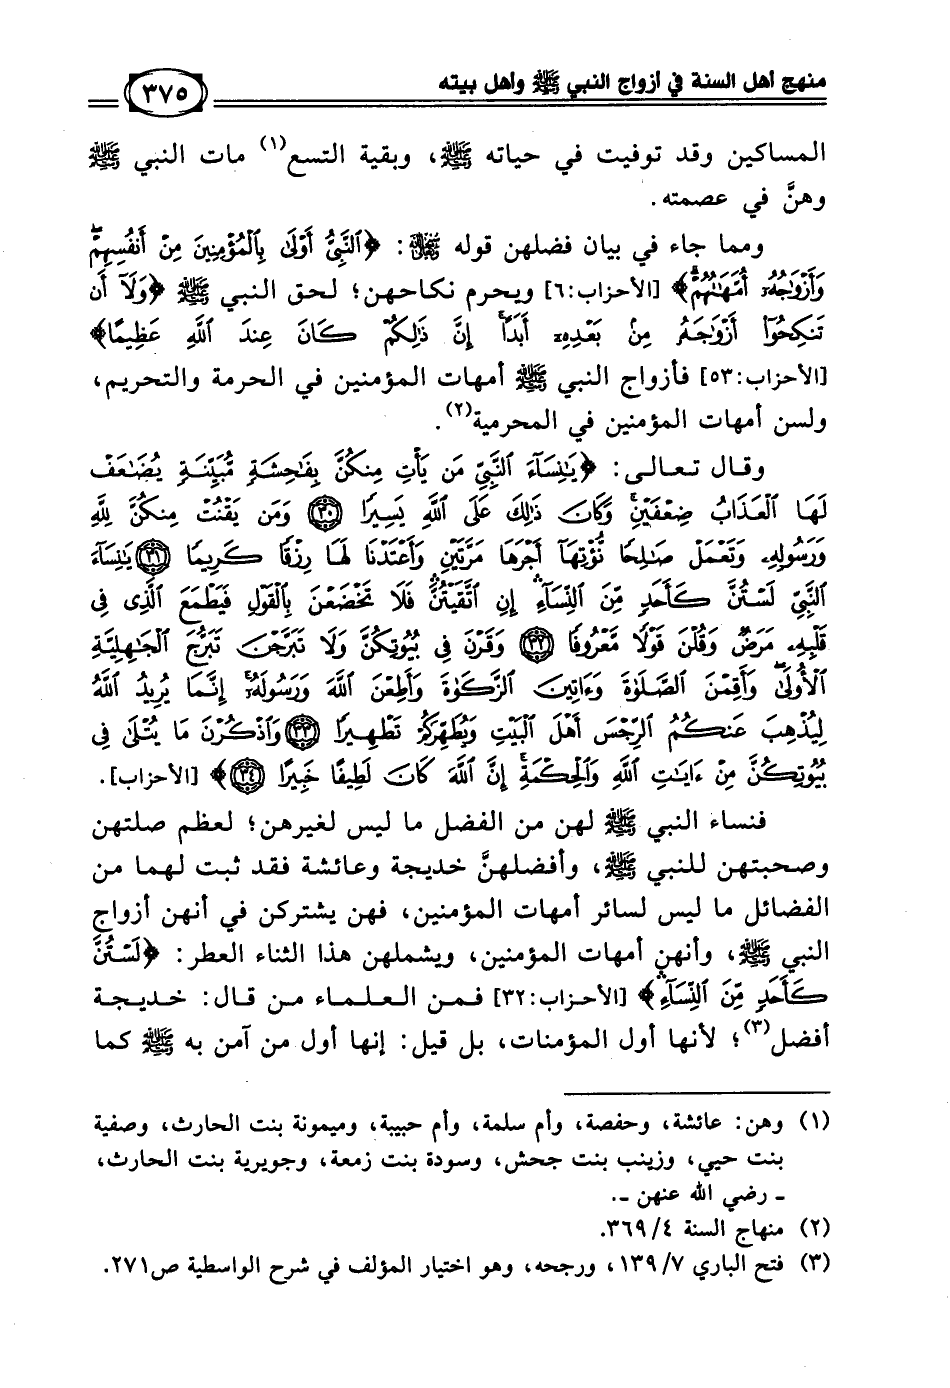 منهج أهل السنة في أزواج النبي ﷺ وأهل بيته ٣٧٥
المساكين وقد توفيت في حياته ﷺ، وبقية التسع(١) مات النبي ﷺ
وهنَّ في عصمته.
ومما جاء في بيان فضلهن قوله ﷻ: ﴿ٱلنَّبِيُّ أَوۡلَىٰ بِٱلۡمُؤۡمِنِينَ مِنۡ أَنفُسِهِمۡۖ
وَأَزۡوَٰجُهُۥٓ أُمَّهَٰتُهُمۡۗ﴾ [الأحزاب:٦] ويحرم نكاحهن؛ لحق النبي ﷺ ﴿وَلَآ أَن
تَنكِحُوٓاْ أَزۡوَٰجَهُۥ مِنۢ بَعۡدِهِۦٓ أَبَدًاۚ إِنَّ ذَٰلِكُمۡ كَانَ عِندَ ٱللَّهِ عَظِيمًا﴾
[الأحزاب:٥٣] فأزواج النبي ﷺ أمهات المؤمنين في الحرمة والتحريم،
ولسن أمهات المؤمنين في المحرمية(٢).
وقال تعالى: ﴿يَٰنِسَآءَ ٱلنَّبِيِّ مَن يَأۡتِ مِنكُنَّ بِفَٰحِشَةٖ مُّبَيِّنَةٖ يُضَٰعَفۡ
لَهَا ٱلۡعَذَابُ ضِعۡفَيۡنِۚ وَكَانَ ذَٰلِكَ عَلَى ٱللَّهِ يَسِيرٗا ٣٠ وَمَن يَقۡنُتۡ مِنكُنَّ لِلَّهِ
وَرَسُولِهِۦ وَتَعۡمَلۡ صَٰلِحٗا نُّؤۡتِهَآ أَجۡرَهَا مَرَّتَيۡنِ وَأَعۡتَدۡنَا لَهَا رِزۡقٗا كَرِيمٗا ٣١ يَٰنِسَآءَ
ٱلنَّبِيِّ لَسۡتُنَّ كَأَحَدٖ مِّنَ ٱلنِّسَآءِ إِنِ ٱتَّقَيۡتُنَّۚ فَلَا تَخۡضَعۡنَ بِٱلۡقَوۡلِ فَيَطۡمَعَ ٱلَّذِي فِي
قَلۡبِهِۦ مَرَضٞ وَقُلۡنَ قَوۡلٗا مَّعۡرُوفٗا ٣٢ وَقَرۡنَ فِي بُيُوتِكُنَّ وَلَا تَبَرَّجۡنَ تَبَرُّجَ ٱلۡجَٰهِلِيَّةِ
ٱلۡأُولَىٰۖ وَأَقِمۡنَ ٱلصَّلَوٰةَ وَءَاتِينَ ٱلزَّكَوٰةَ وَأَطِعۡنَ ٱللَّهَ وَرَسُولَهُۥٓۚ إِنَّمَا يُرِيدُ ٱللَّهُ
لِيُذۡهِبَ عَنكُمُ ٱلرِّجۡسَ أَهۡلَ ٱلۡبَيۡتِ وَيُطَهِّرَكُمۡ تَطۡهِيرٗا ٣٣ وَٱذۡكُرۡنَ مَا يُتۡلَىٰ فِي
بُيُوتِكُنَّ مِنۡ ءَايَٰتِ ٱللَّهِ وَٱلۡحِكۡمَةِۚ إِنَّ ٱللَّهَ كَانَ لَطِيفًا خَبِيرًا ٣٤﴾ [الأحزاب].
فنساء النبي ﷺ لهن من الفضل ما ليس لغيرهن؛ لعظم صلتهن
وصحبتهن للنبي ﷺ، وأفضلهنَّ خديجة وعائشة فقد ثبت لهما من
الفضائل ما ليس لسائر أمهات المؤمنين، فهن يشتركن في أنهن أزواج
النبي ﷺ، وأنهن أمهات المؤمنين، ويشملهن هذا الثناء العطر: ﴿لَسۡتُنَّ
كَأَحَدٖ مِّنَ ٱلنِّسَآءِ﴾ [الأحزاب:٣٢] فمن العلماء من قال: خديجة
أفضل(٣)؛ لأنها أول المؤمنات، بل قيل: إنها أول من آمن به ﷺ كما
(١) وهن: عائشة، وحفصة، وأم سلمة، وأم حبيبة، وميمونة بنت الحارث، وصفية
بنت حيي، وزينب بنت جحش، وسودة بنت زمعة، وجويرية بنت الحارث،
ـ رضي الله عنهن ـ.
(٢) منهاج السنة ٤/ ٣٦٩.
(٣) فتح الباري ٧/ ١٣٩، ورجحه، وهو اختيار المؤلف في شرح الواسطية ص٢٧١.